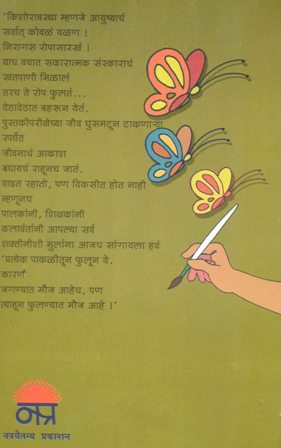 'किशोरावस्था म्हणजे आयुष्याचं
सर्वात् कोवळं वळण !
निरागस रोपासारखं !
याच वयात सकारात्मक संस्काराचं
खतपाणी मिळालं
तरच ते रोप फुलतं...
देठादेठात बहरून येतं.
पुस्तकीपरीक्षेच्या जीव घुसमटून टाकणाऱ्या
स्पर्धेत
जीवनाचं आकाश
बघायचं राहूनच जातं.
वाढत रहातो, पण विकसीत होत नाही
म्हणूनच
पालकांनी, शिक्षकांनी
कलावंतांनी आपल्या सर्व
शक्तीनीशी मुलांना आजच सांगायला हवं
'प्रत्येक पाकळीतून फुलून ये.
कारणं
जगण्यात मौज आहेच, पण
त्याहून फुलण्यात मौज आहे !'
नप्र
नवचैतन्य प्रकाशन